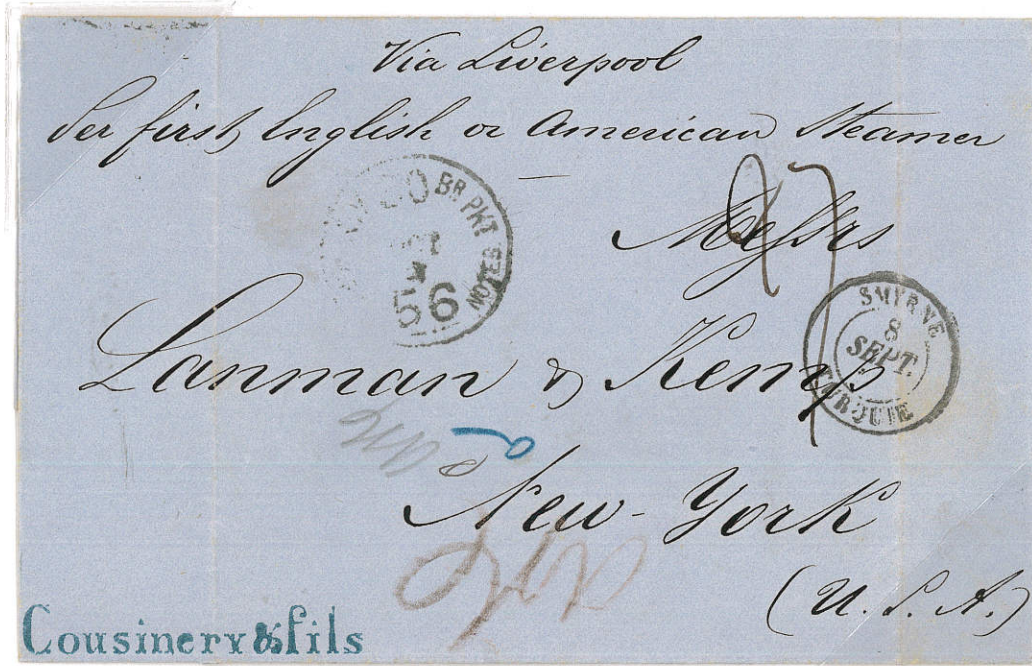 Via Liverpool
Per first English or American Steamer
BR PKT
NOTES
56
27
Messrs
SMYRNE
8
SEPT.
TURQUIE
Lanman & Kemp
New-York
(U.S.A.)
Cousinery & fils